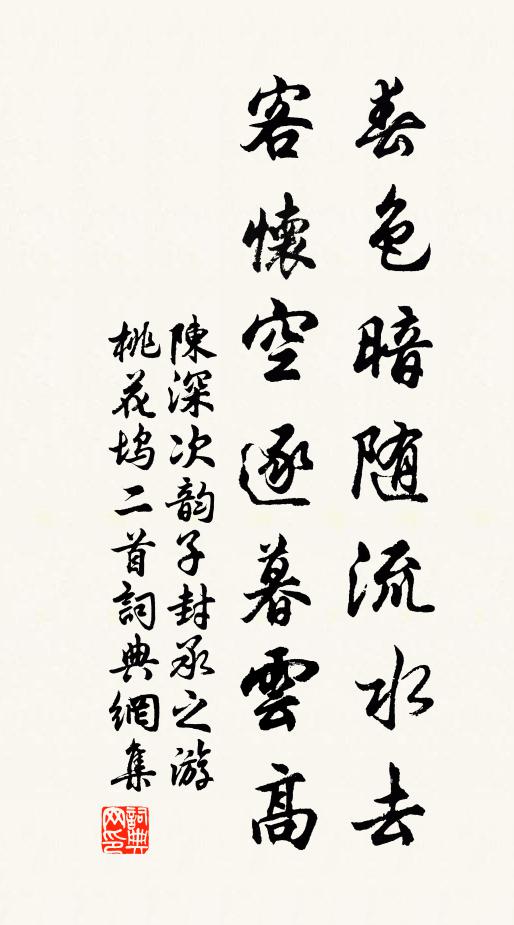 春色暗随流水去
客懷空逐暮雲高
陳深次韵子封承之游
桃花坞二首詞典網集
詞典网印